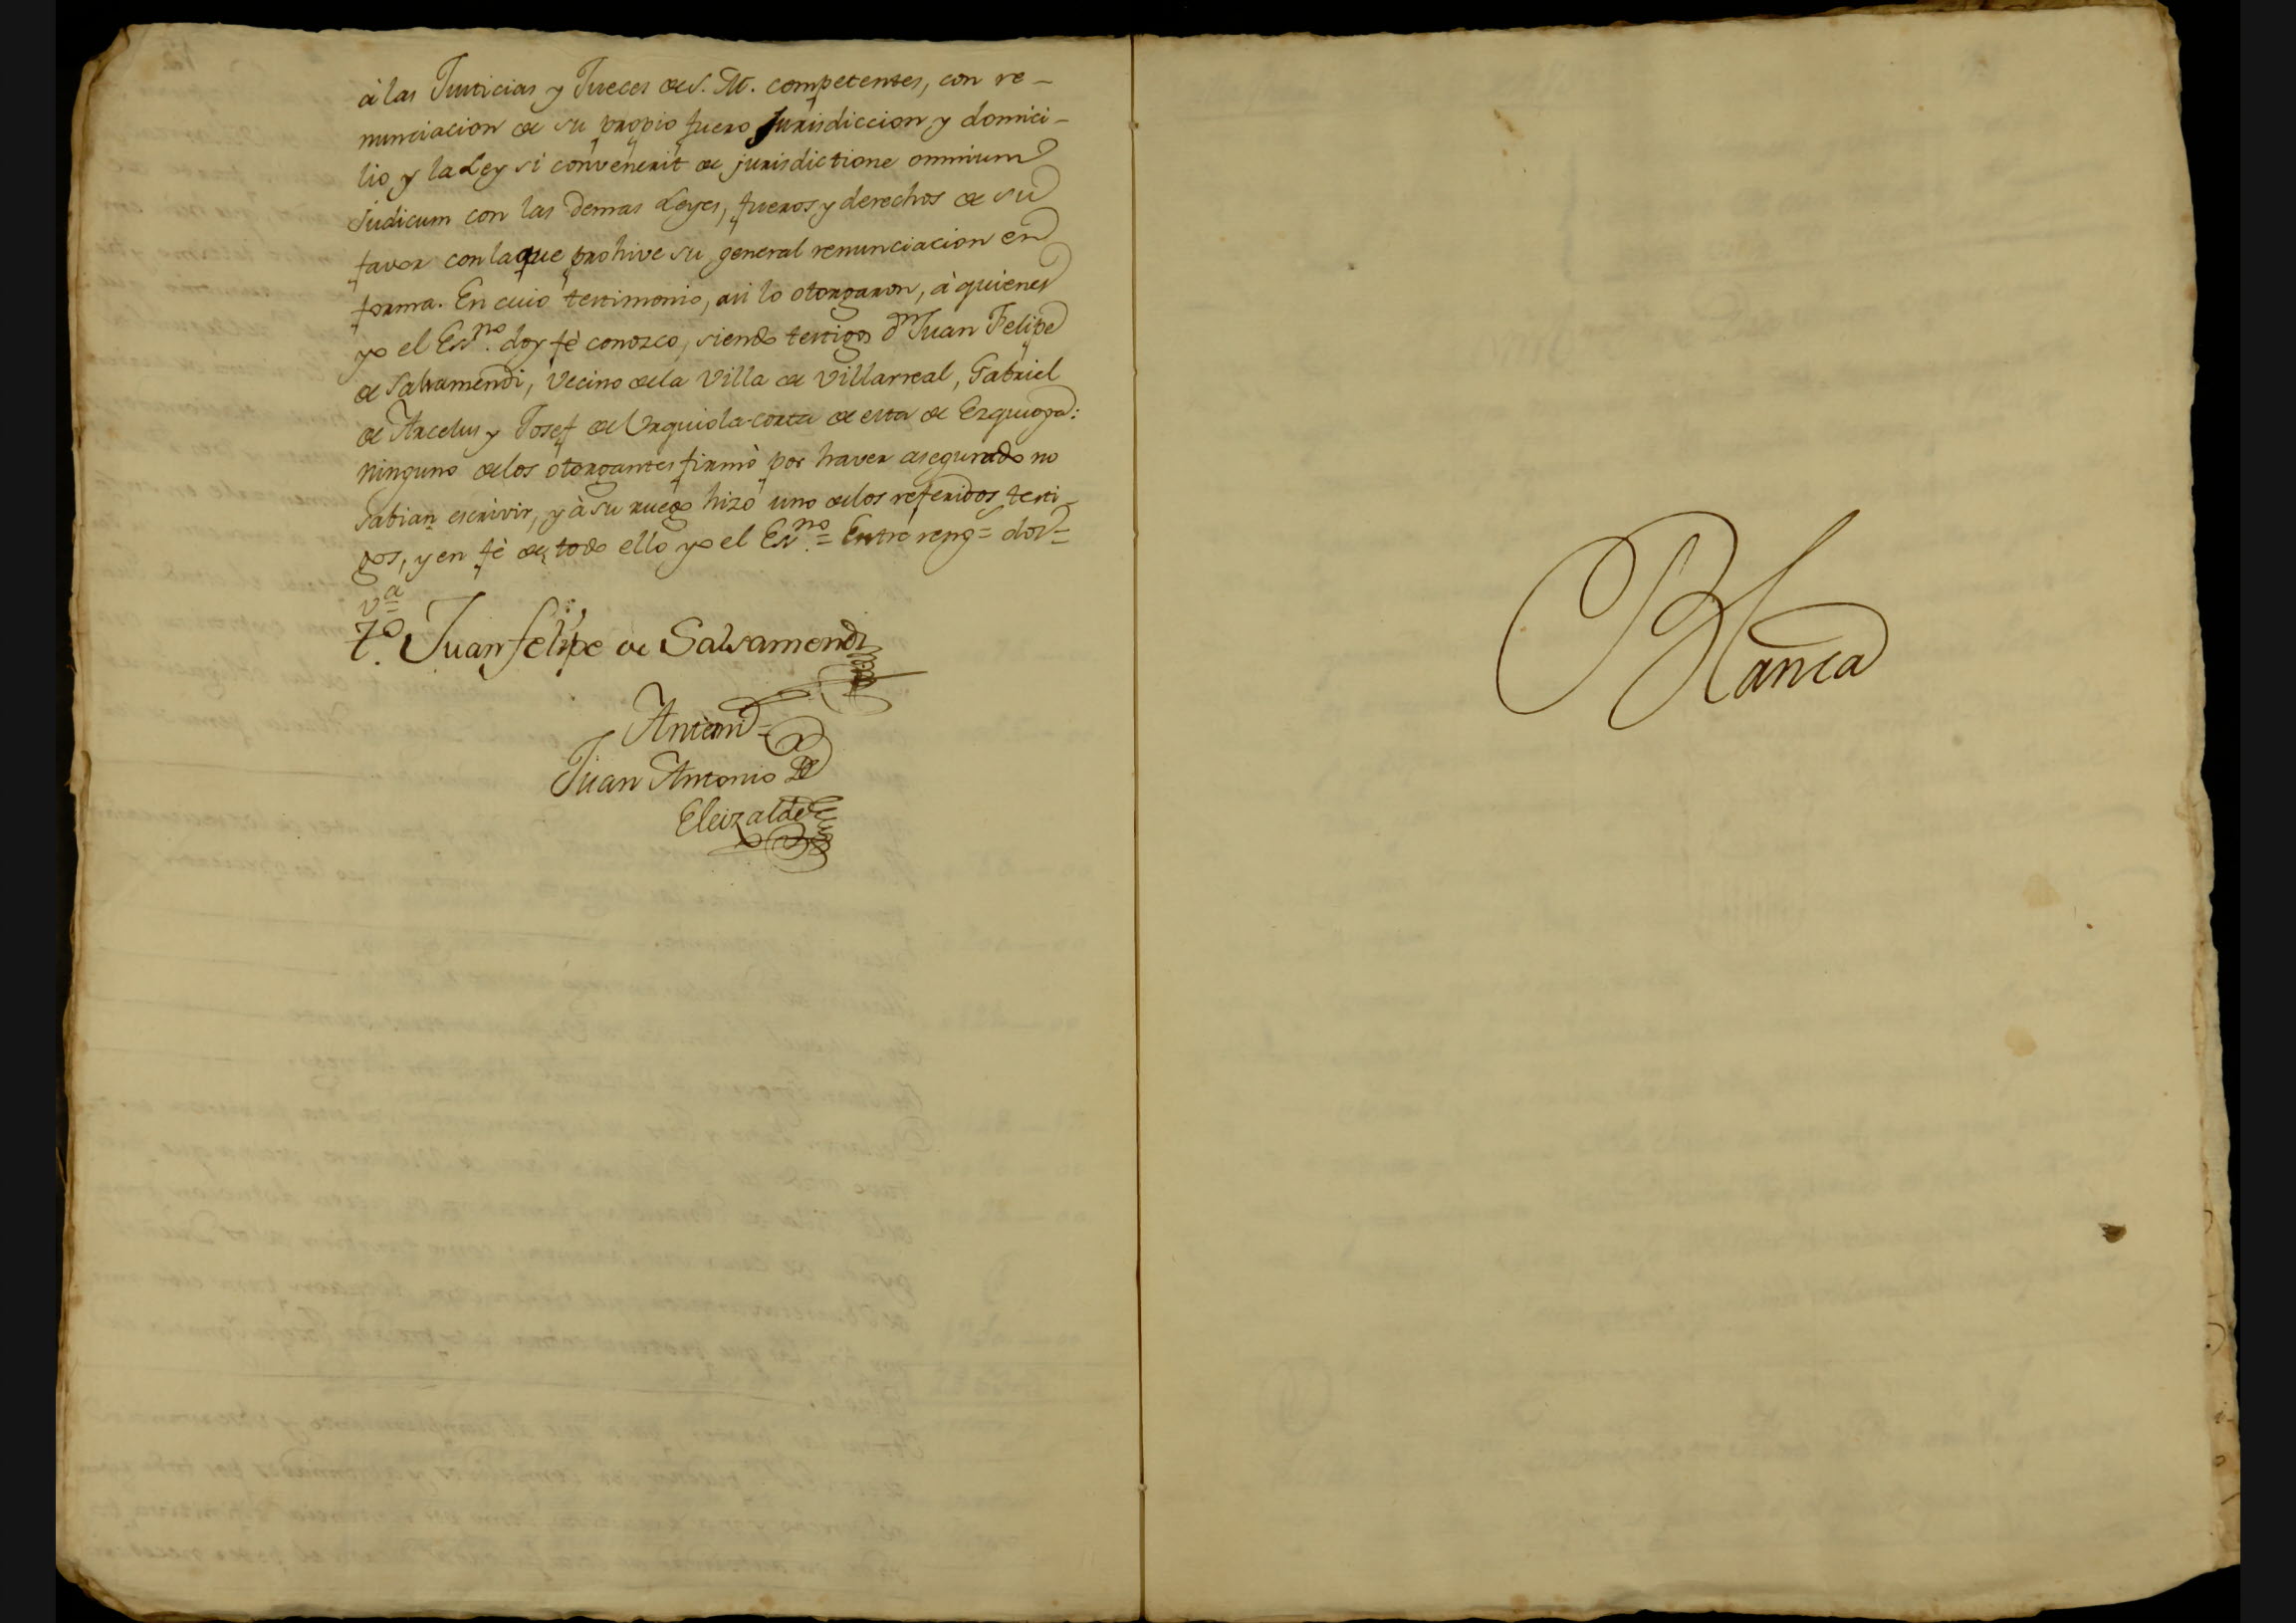 à las Justicias y Jueces de S. M. competentes, con re-
nunciacion de su propio fuero Jurisdiccion y domici-
lio y la Ley si convenerit de jurisdictione omnium
Judicum con las demas Leyes, fueros y derechos de su
favor con la que prohive su general renunciacion en
forma. En cuio testimonio, asi lo otorgaron, à quienes
yo el Esno. doy fè conozco, siendo testigos dn Juan Felipe
de Salsamendi, Vecino de la Villa de Villarreal, Gabriel
de Arcelus y Josef de Urquiola-corta de esta de Ezquioga:
ninguno de los otorgantes firmò por haver asegurado no
Sabian escrivir, y à su ruego hizò uno de los referidos testi-
gos, y en fè de todo ello yo el Esno.= Entre reng= dos=
va=
To. Juan felipe de Salsamendi
Antemi=
Juan Antonio De
Eleizalde
Blanca